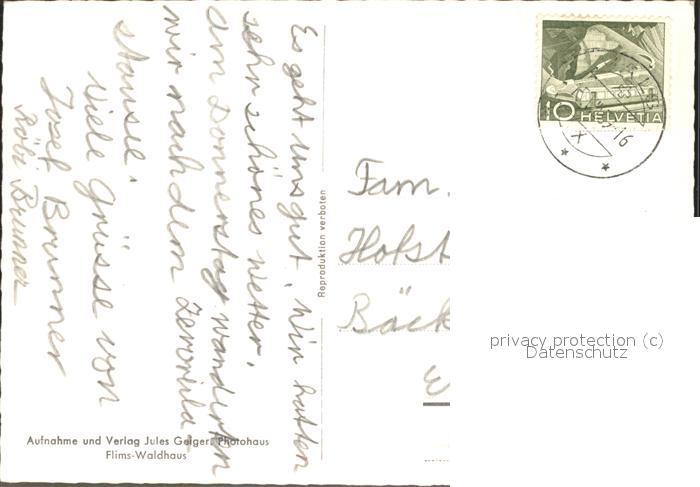 Es geht uns gut. Wir hatten
sehr schönes wetter.
am Donnerstag wanderten
wir nach dem Zervreila
stausee.
Viele Grüsse von
Josef Brunner
Röbi Brunner
Reproduktion verboten
Aufnahme und Verlag Jules Geiger, Photohaus
Flims-Waldhaus
10 HELVETIA
Fam.
Holst
Bäck
privacy protection (c)
Datenschutz